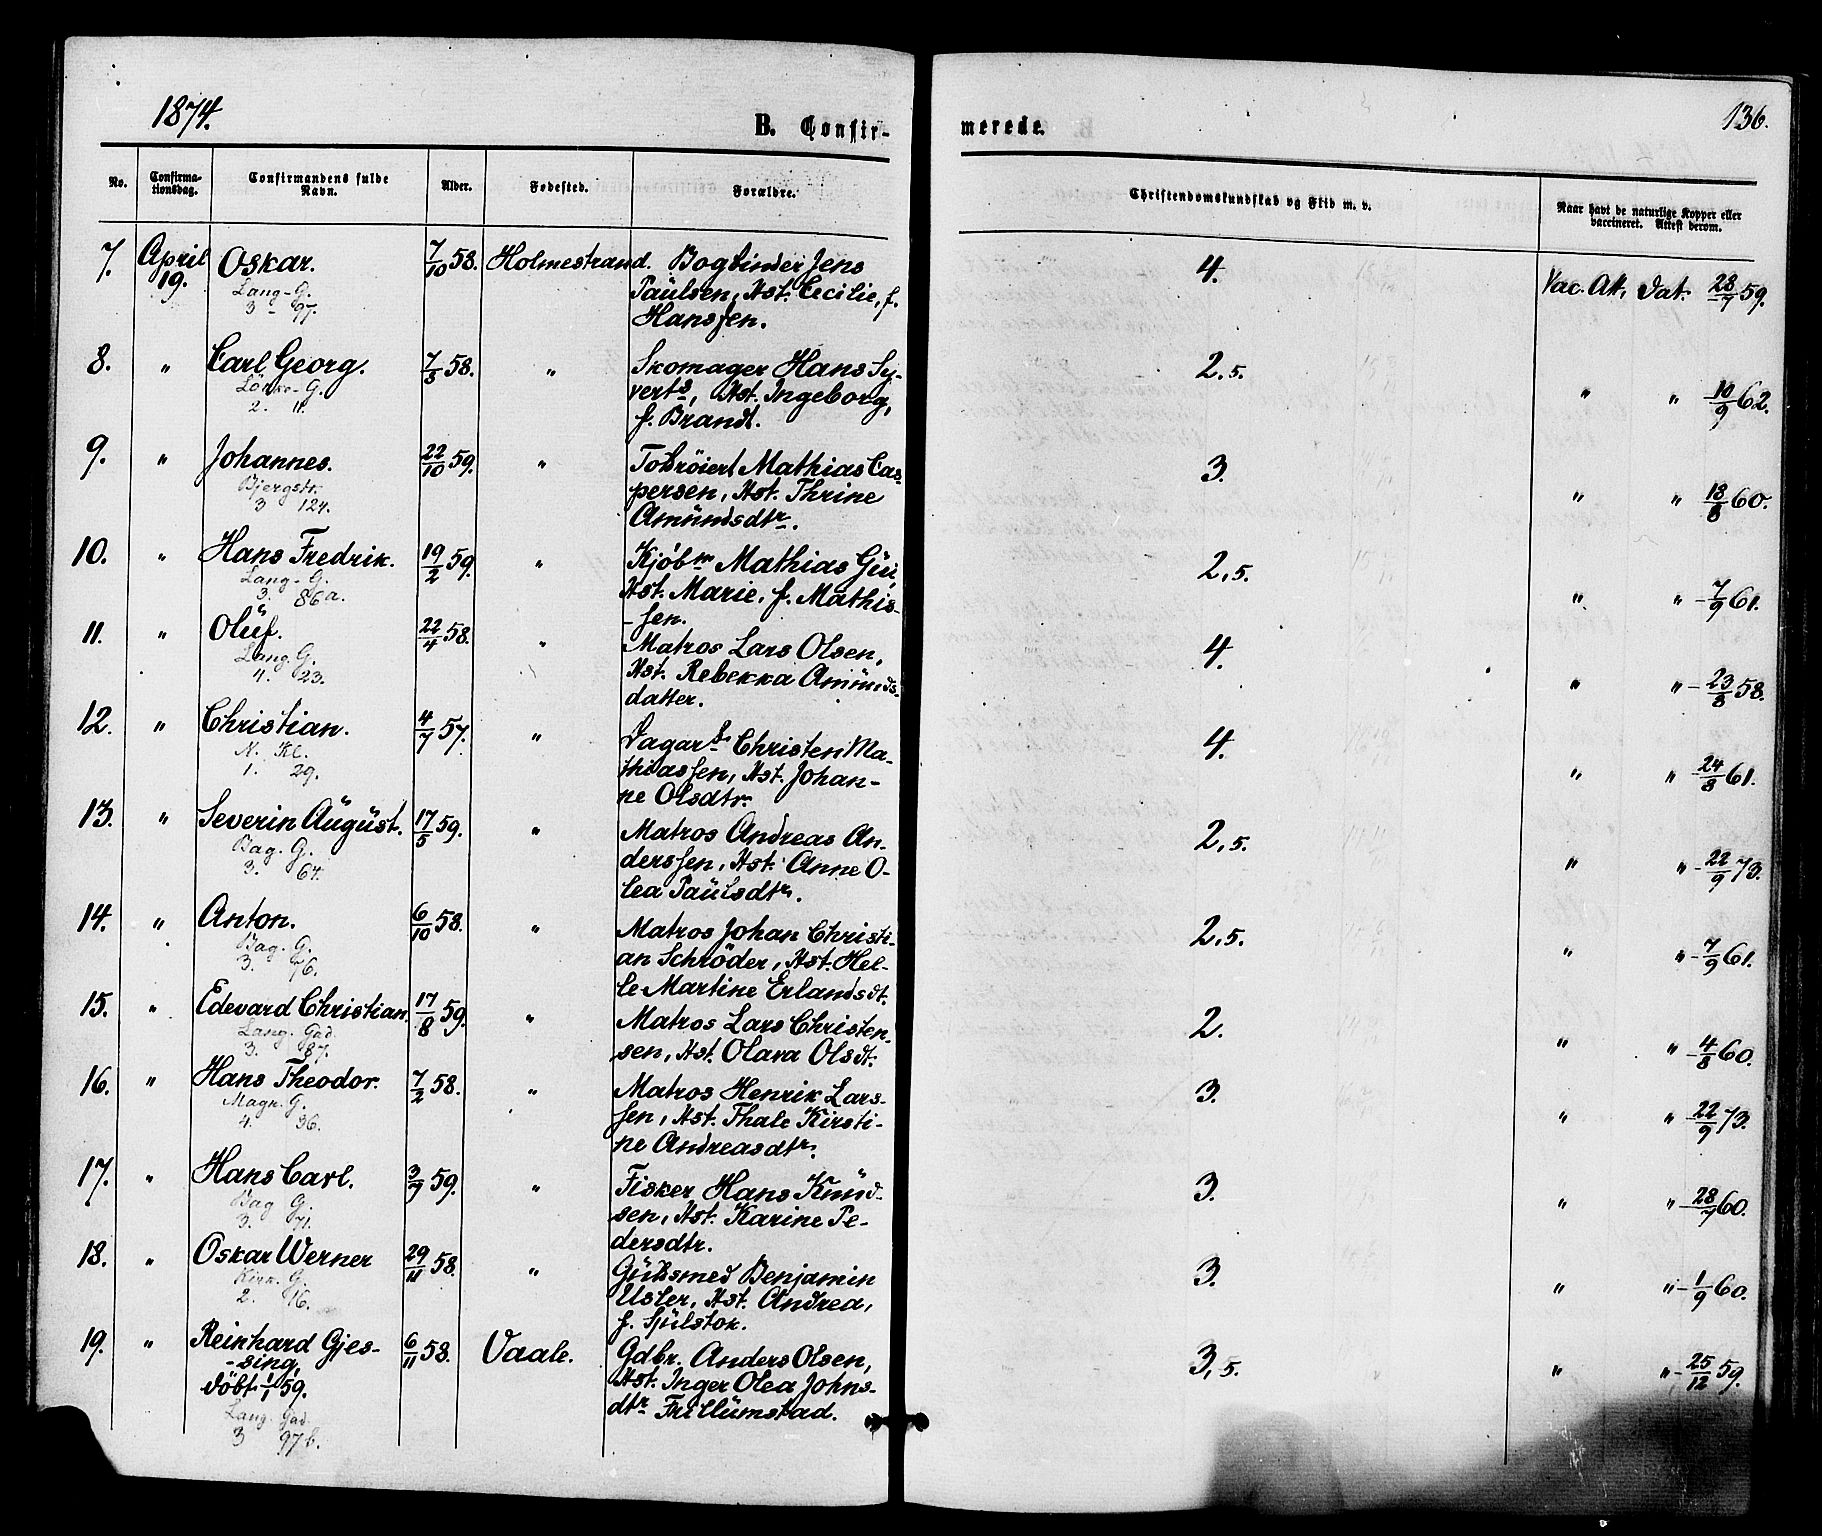 1874.
136.
B. Confir-
merede.
No.
Confirma-
tionsdag.
Confirmandens fulde
Navn.
Alder.
Fødested.
Forældre.
Christendomskundskab og Flid m. v.
Naar havt de naturlige Kopper eller
vaccineret. Attest derom.
7. April 19. Oskar. 7/10 58. Holmestrand. Bogbinder Jens 4. Vac. Att. dat. 28/7 59.
Lang-G. Paulsen, Hst. Cecilie, f.
3 97. Hanssen.
8. " Carl Georg. 7/3 58. " Skomager Hans Sy- 2,5. " " 10/9 62.
G. verts, Hst. Ingeborg,
2. 11. f. Brandt.
9. " Johannes. 22/10 59. " Mathias Cas- 3. " " 18/8 60.
Bjergstr. persen, Hst. Thrine
3 124. Amundsdtr.
10. " Hans Fredrik. 19/2 59. " Kjøbm Mathias Gui, 2,5. " " 7/9 61.
Lang-G. Hst. Marie, f. Mathis-
3. 86a. -sen.
11. " Oluf. 22/4 58. " Matros Lars Olsen, 4. " " 23/8 58.
Lang. G. Hst. Rebekka Amunds-
4. 23. datter.
12. " Christian. 4/7 57. " Christen Ma- 4. " " 24/8 61.
N. Kl. thiassen, Hst. Johan-
1. 29. ne Olsdtr.
13. " Severin August. 17/5 59. " Matros Andreas An- 2,5. " " 22/9 73.
Bag. G. derssen, Hst. Anne O-
3. 64. lea Paulsdtr.
14. " Anton. 6/10 58. " Matros Johan Christi- 2,5. " " 7/9 61.
Bag. G. an Schröder, Hst. Hel-
3. 76. le Martine Erlandsdt.
15. " Edevard Christian. 17/8 59. " Matros Lars Christen- 2. " " 4/8 60.
Lang. Gad. sen, Hst. Olava Olsdt.
3. 87.
16. " Hans Theodor. 7/2 58. " Matros Henrik Lars- 3. " " 22/9 73.
Magn. G. sen, Hst. Thale Kirsti-
4. 36. ne Andreasdtr.
17. " Hans Carl. 3/7 59. " Fisker Hans Knud- 3. " " 28/7 60.
Bag G. sen, Hst. Karine Pe-
3. 71. dersdtr.
18. " Oskar Werner 29/11 58. " Gulsmed Benjamin 3. " " 1/9 60.
Kirk. G. Usler, Hst. Andrea,
2. 16. f. Sjulstok.
19. " Reinhard Gjes- 6/11 58. Vaale. Gdbr. Anders Olsen, 3,5. " " 25/12 59.
-sing, Hst. Inger Olea Johns-
døbt 1/1 59. dtr Frellumstad.
Lang. Gad.
3 97b.